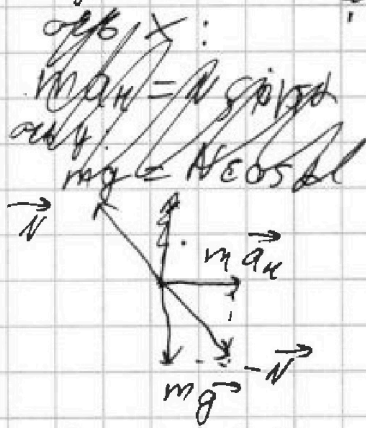 ось x:
ma_н = N sinα
ось y:
mg = N cosα
N⃗
ma⃗_н
mg⃗ -N⃗